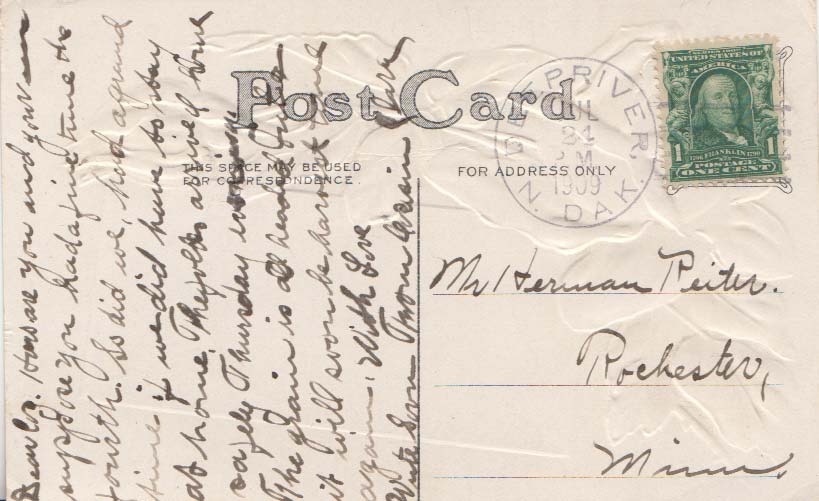 Post Card
THIS SPACE MAY BE USED
FOR CORRESPONDENCE.
FOR ADDRESS ONLY
DEEPRIVER,
JUL
24
M
1909
N. DAK.
SERIES 1902
UNITED STATES OF
AMERICA
1 FRANKLIN 1
POSTAGE
ONE CENT
Mr Herman Reiter.
Rochester,
Minn.
Dear Coz. How are you and your
suppose you had a fine time the
fourth. So did we, had a good
time if we did have to stay
at home. The folks arrived home
safely Thursday evening
The grain is all headed out so
it will soon be harvest time
again. With Love
Write Soon From Cousin Clara